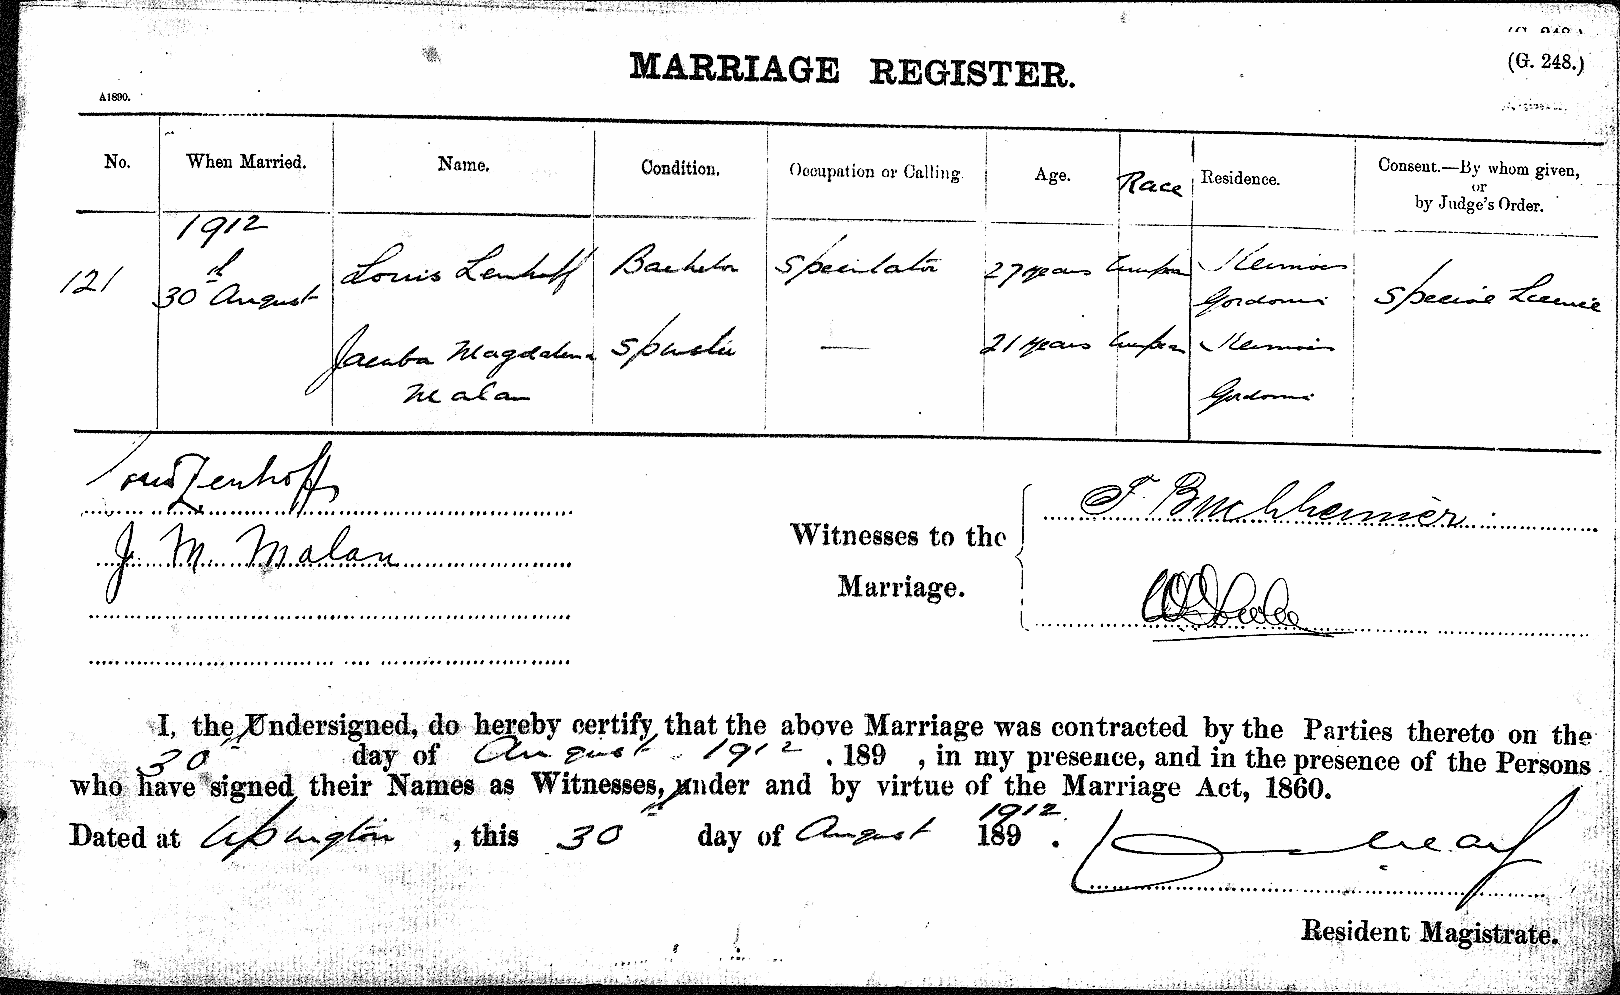 MARRIAGE REGISTER.
(G. 248.)
A1890.
No. When Married. Name. Condition. Occupation or Calling. Age. Race Residence. Consent.—By whom given,
or
by Judge's Order.
1912
121 30th August Louis Lenhoff Bachelor Speculator 27 years European Keimoes
Gordonia Special Licence
Jacoba Magdalena Spinster — 21 years European Keimoes
Malan Gordonia
Louis Lenhoff
J. M. Malan
Witnesses to the
Marriage.
F. Buchheimer
I, the Undersigned, do hereby certify that the above Marriage was contracted by the Parties thereto on the
30th day of August 1912 . 189 , in my presence, and in the presence of the Persons
who have signed their Names as Witnesses, under and by virtue of the Marriage Act, 1860.
Dated at Upington , this 30th day of August 1912 189 .
Resident Magistrate.